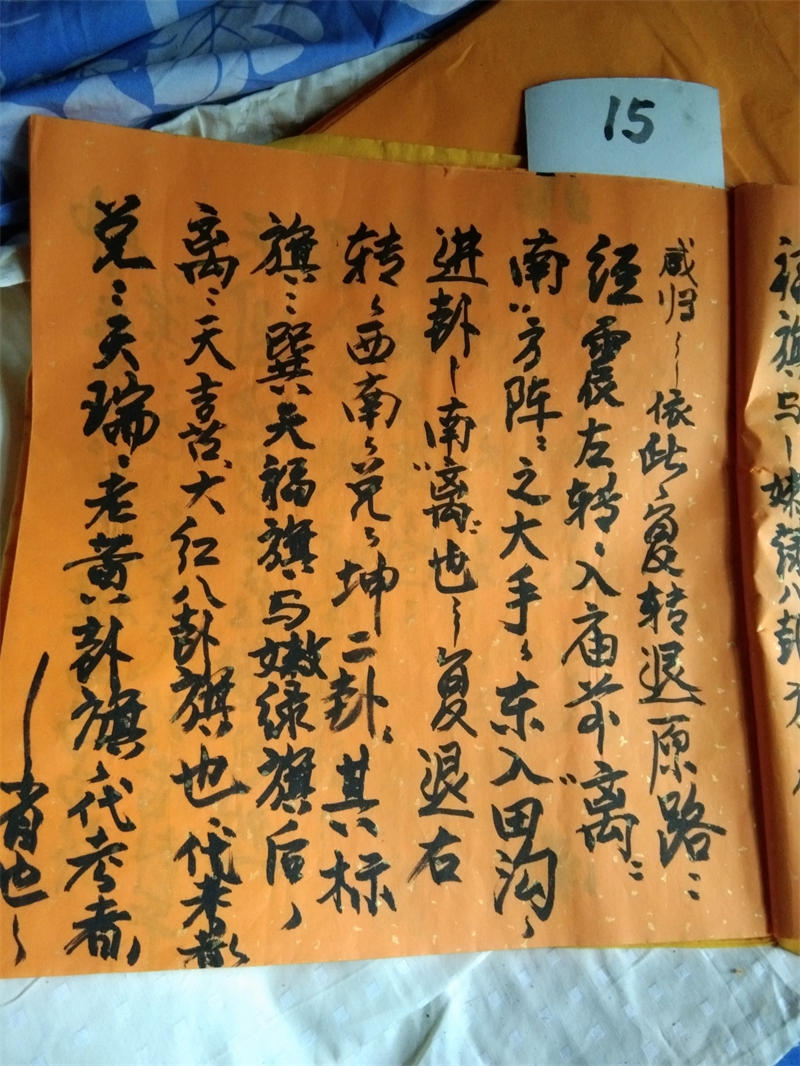 15
福旗与嫩绿八卦
咸归依此复转退原路
经震左转入庙前离
南方阵之大手东入田沟
进卦南离也复退右
转西南兑坤二卦其标
旗巽天福旗与嫩绿旗后
离天吉大红八卦旗也代考都
兑天瑞老黄卦旗代考者
肖也